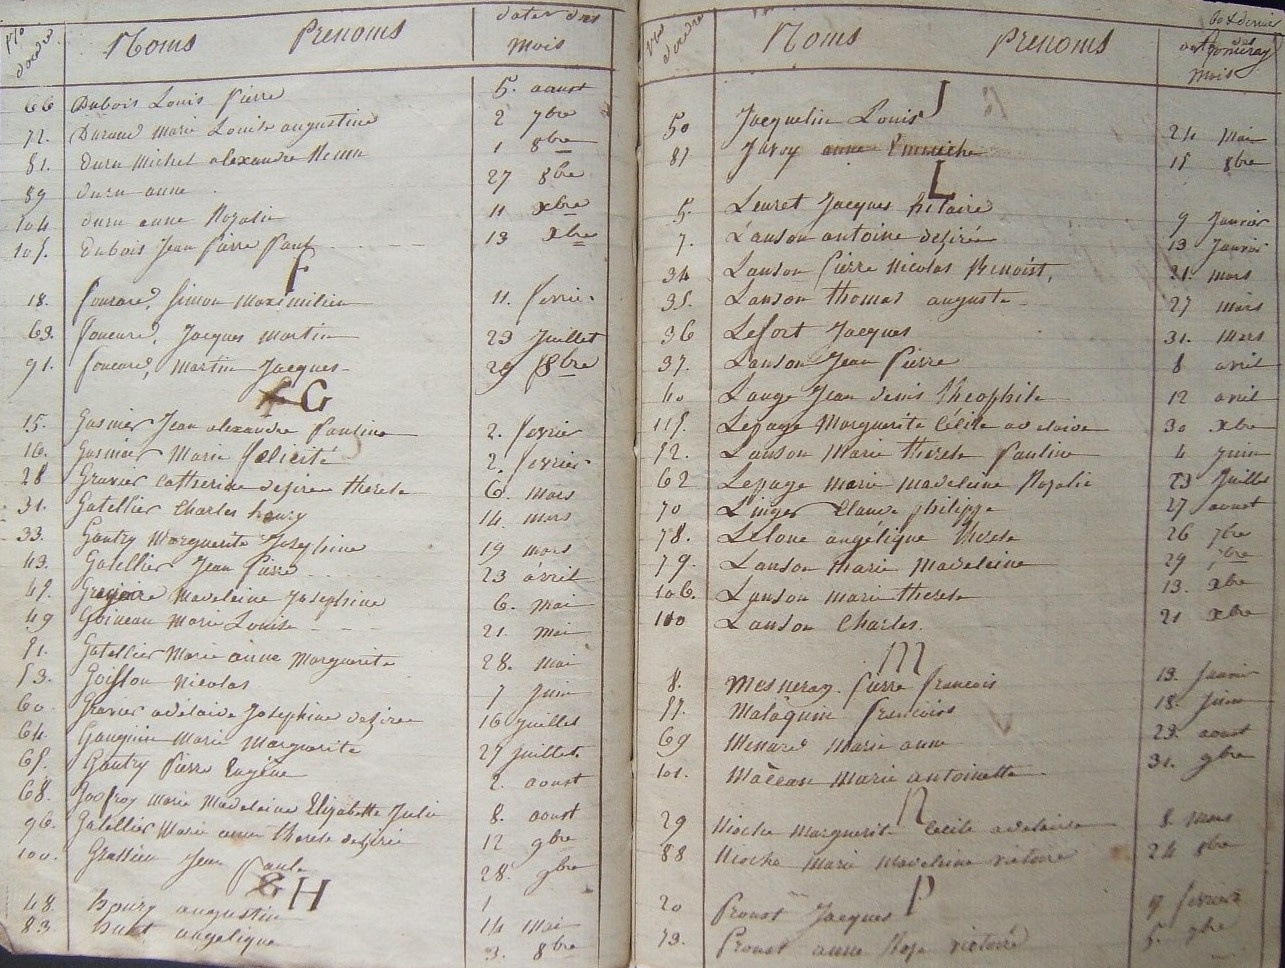 Nos d'ordre Noms Prenoms dates des mois
66 Dubois Louis Pierre 5. aoust
72. Durand Marie Louise augustine 2 7bre
81. duru Michel alexandre 1 8bre
89 duru anne 27 8bre
104 duru anne Rozalie 11 Xbre
105. Dubois Jean Pierre Paul 13 Xbre
F
18. foucard, Simon Maximilien 11. fevrier
63. foucard, Jacques Martin 23 Juillet
91. foucard, Martin Jacques 29 8bre
G
15. Gasnier Jean alexandre Pauline 2. fevrier
16. Gasnier Marie felicité 2. fevrier
28 Gravier Catherine desirée therese 6. mars
31. Gatellier Charles henry 14. mars
33. Gautry Marguerite Josephine 19 mars
43. Gatellier Jean Pierre 23 avril
45. Gregoire Madeleine Josephine 6. mai
49 Goineau Marie Louise 21. mai
51. Gatellier Marie anne Marguerite 28. mai
53. Goisson Nicolas 7 Juin
60. Gravier adelaide Josephine desirée 16 Juillet
64. Gauguin Marie Marguerite 27 Juillet
65. Gautry Pierre Eugene 2. aoust
68. Godfroy Marie Madeleine Elizabette Julie 8. aoust
96. Gatellier Marie anne therese desirée 12 9bre
100. Jean Paul 28. 9bre
H
48. augustin 14 Mai
83. huet angelique 3. 8bre
Nos d'ordre Noms Prenoms dates des Mois
J
50 Jacquelin Louis 24 Mai
87 Javoy anne 15 8bre
L
5. Leuret Jacques hilaire 9 Janvier
7. Lanson antoine desiré 13 Janvier
34 Lanson Pierre Nicolas Benoist, 21. mars
35. Lanson thomas auguste 27 mars
36 Lefort Jacques 31. Mars
37. Lanson Jean Pierre 8 avril
40 Lauge Jean denis theophile 12 avril
115. Lepage Marguerite Cécile adelaide 30 Xbre
52. Lanson Marie therese Pauline 4 Juin
62 Lepage marie madeleine Rozalie 23 Juillet
70 Linger Claude philippe 27 aoust
78. angélique therese 26 7bre
79. Lanson Marie Madeleine 29 7bre
106. Lanson marie therese 13. Xbre
110 Lanson Charles. 21 Xbre
M
8. Mesneray. Pierre francois 13. Janvier
57. Malaquin francois 18. Juin
69 Menard Marie anne 29. aoust
101. Marie antoinette 31. 9bre
N
29 Nioche Marguerite Cecile adelaide 8. Mars
88 Nioche Marie Madeleine victoire 24 8bre
P
20 Proust Jacques 9 fevrier
73. Proust anne Rose victoire 5. 7bre